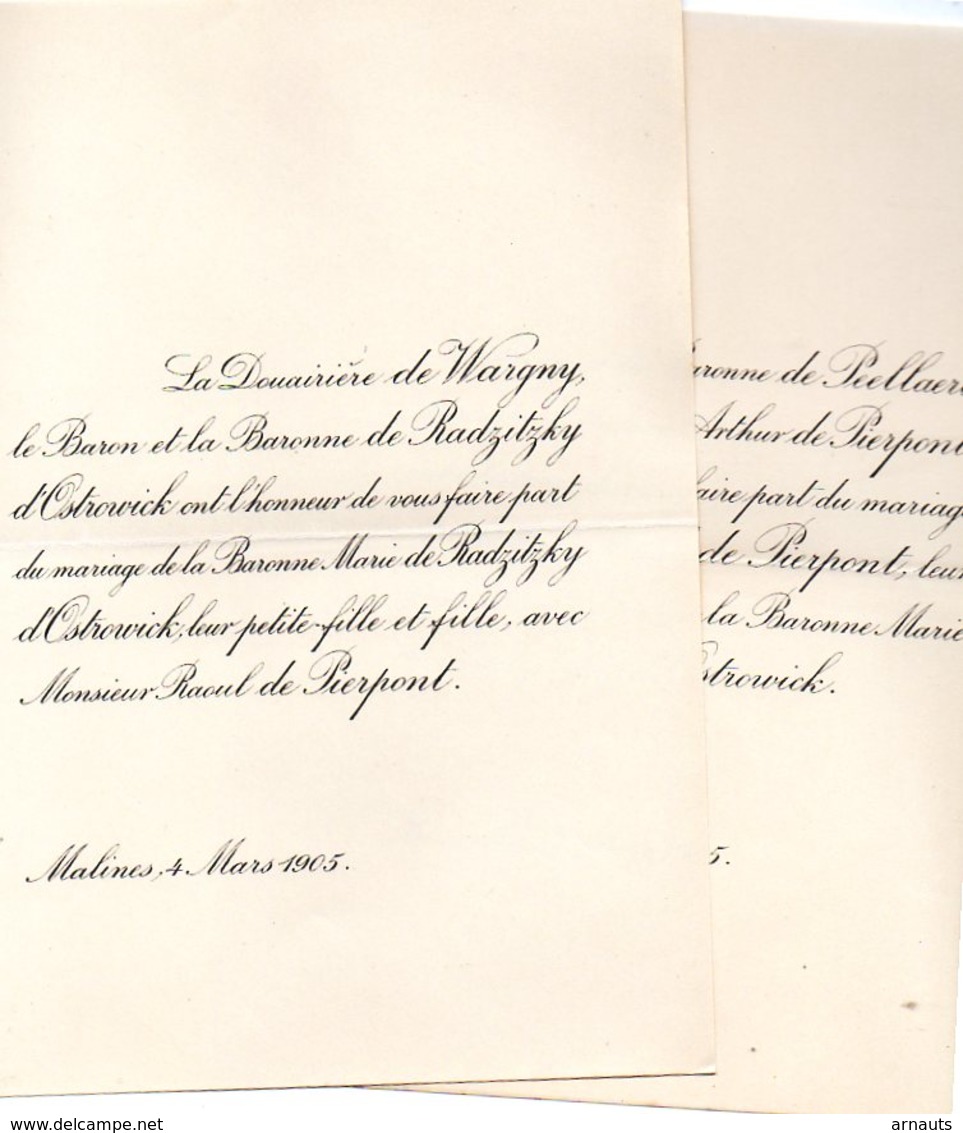 La Douairière de Wargny,
le Baron et la Baronne de Radzitzky
d'Ostrowick ont l'honneur de vous faire part
du mariage de la Baronne Marie de Radzitzky
d'Ostrowick, leur petite-fille et fille, avec
Monsieur Raoul de Pierpont.
Malines, 4 Mars 1905.
aronne de Peellaer
Arthur de Pierpont
faire part du mariag
de Pierpont, leur
la Baronne Marie
Ostrowick.
5.
delcampe.net
arnauts